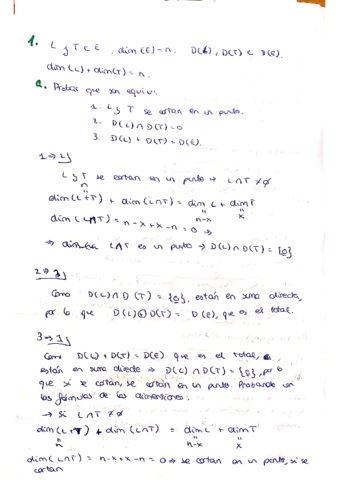 1. L y T ⊂ E, dim(E)=n. D(L), D(T) ⊂ D(E).
dim(L)+dim(T)=n.
a. Probar que son equiv:
1. L y T se cortan en un punto.
2. D(L)∩D(T)=0
3. D(L)+D(T)=D(E).
1⇒2)
L y T se cortan en un punto → L∩T ≠ ∅
dim(L+T) + dim(L∩T) = dim L + dim T
n n-x x
dim(L∩T) = n-x+x-n = 0 ⇒
⇒ L∩T es un punto → D(L)∩D(T)={0}
2⇒3)
Como D(L)∩D(T)={0}, están en suma directa,
por lo que D(L)⊕D(T)= D(E), que es el total.
3⇒1)
Como D(L)+D(T)=D(E) que es el total,
están en suma directa → D(L)∩D(T)={0}, por lo
que si se cortan, se cortan en un punto. Probando con
las fórmulas de las dimensiones:
→ Si L∩T≠∅
dim(L+T) + dim(L∩T) = dim L + dim T
n n-x x
dim(L∩T)= n-x+x-n=0 ⇒ se cortan en un punto, si se
cortan